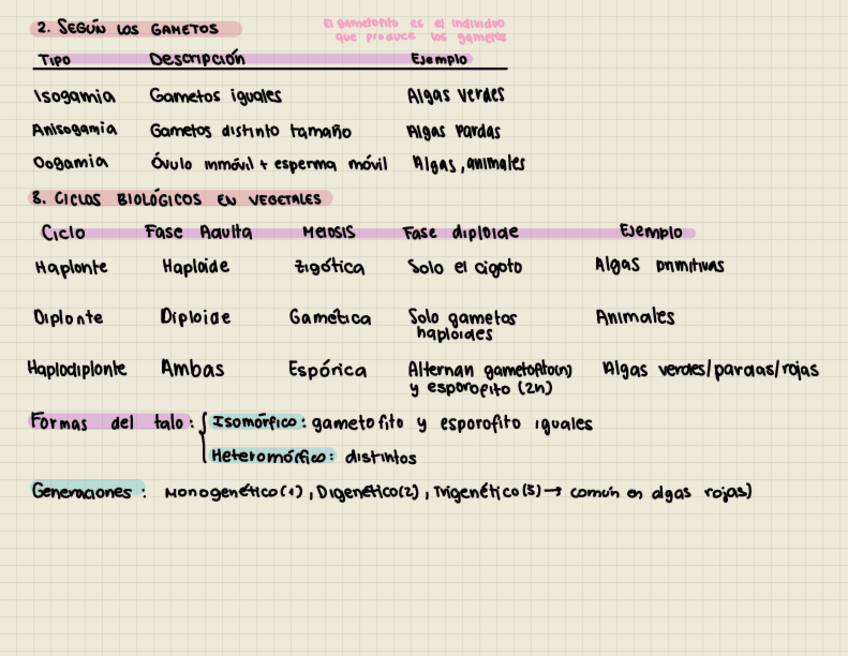 2. SEGÚN LOS GAMETOS
El gametofito es el individuo
que produce los gametos
Tipo Descripción Ejemplo
Isogamia Gametos iguales Algas verdes
Anisogamia Gametos distinto tamaño Algas pardas
Oogamia Óvulo inmóvil + esperma móvil Algas, animales
3. CICLOS BIOLÓGICOS EN VEGETALES
Ciclo Fase Adulta MEIOSIS Fase diploide Ejemplo
Haplonte Haploide Zigótica Solo el cigoto Algas primitivas
Diplonte Diploide Gamética Solo gametos Animales
haploides
Haplodiplonte Ambas Espórica Alternan gametofito(n) Algas verdes/pardas/rojas
y esporofito (2n)
Formas del talo: { Isomórfico: gametofito y esporofito iguales
Heteromórfico: distintos
Generaciones: Monogenético(1), Digenético(2), Trigenético(3) → común en algas rojas)